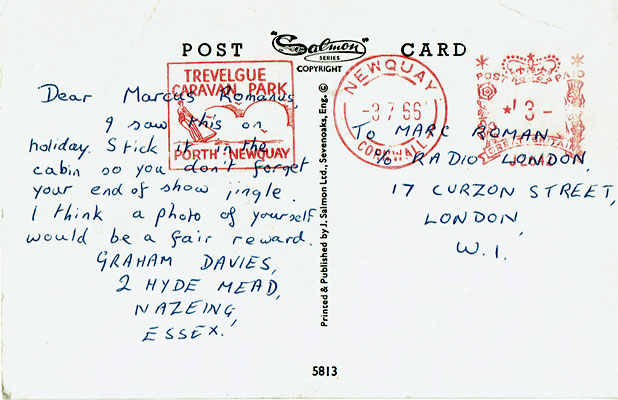 POST "Salmon" CARD
SERIES
COPYRIGHT ©
TREVELGUE
CARAVAN PARK
PORTH NEWQUAY
NEWQUAY
-3 7 66
CORNWALL
POST PAID
3-
GREAT BRITAIN
Dear Marcus Romanus,
I saw this on
holiday. Stick it in the
cabin so you don't forget
your end of show jingle.
I think a photo of yourself
would be a fair reward.
GRAHAM DAVIES,
2 HYDE MEAD,
NAZEING,
ESSEX.
Printed & Published by J. Salmon Ltd., Sevenoaks, Eng.
To MARC ROMAN
c/o RADIO LONDON,
17 CURZON STREET,
LONDON
W.1.
5813